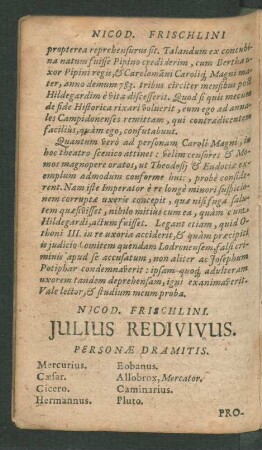 NICOD. FRISCHLINI
propterea reprehensurus sit. Talandum ex concubi-
na natum fuisse Pipino crediderim, cum Bertha u-
xor Pipini regis, & Carolomanni Caroliq; Magni ma-
ter, anno demum 783. tribus circiter mensibus post
Hildegardim è vita discesserit. Quod si quis mecum
de fide Historica rixari volueris, eum ego ad anna-
les Campidonenses remittam, qui contradicentem
facilius, quàm ego, confutabunt.
Quantum verò ad personam Caroli Magni, in
hoc theatro scenico attinet: velim censores & Mo-
mos magnopere oratos, ut Theodosii & Eudociæ ex-
emplum admodum conforme huic, probè conside-
rent. Nam iste Imperator è re longè minori suspicio-
nem corruptæ uxoris concepit, quæ nisi fuga salu-
tem quæsivisset, nihilo mitius cum ea, quàm cum
Hildegardi, actum fuisset. Legant etiam, quid O-
thoni III. in re uxoria acciderit, & quàm præcipiti
is judicio Comitem quendam Lodronensem, falsi cri-
minis apud se accusatum, non aliter ac Josephum
Potiphar condemnaverit: ipsam quoq; adulteram
uxorem tandem deprehensam, igni exanimaverit.
Vale lector, & studium meum proba.
NICOD. FRISCHLINI.
JULIUS REDIVIVUS.
PERSONÆ DRAMITIS.
Mercurius. Eobanus.
Cæsar. Allobrox, Mercator.
Cicero. Caminarius.
Hermannus. Pluto.
PRO-